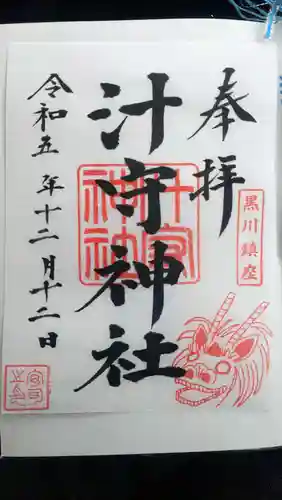 奉拝
黒川鎮座
汁守神社
令和五年十二月十二日